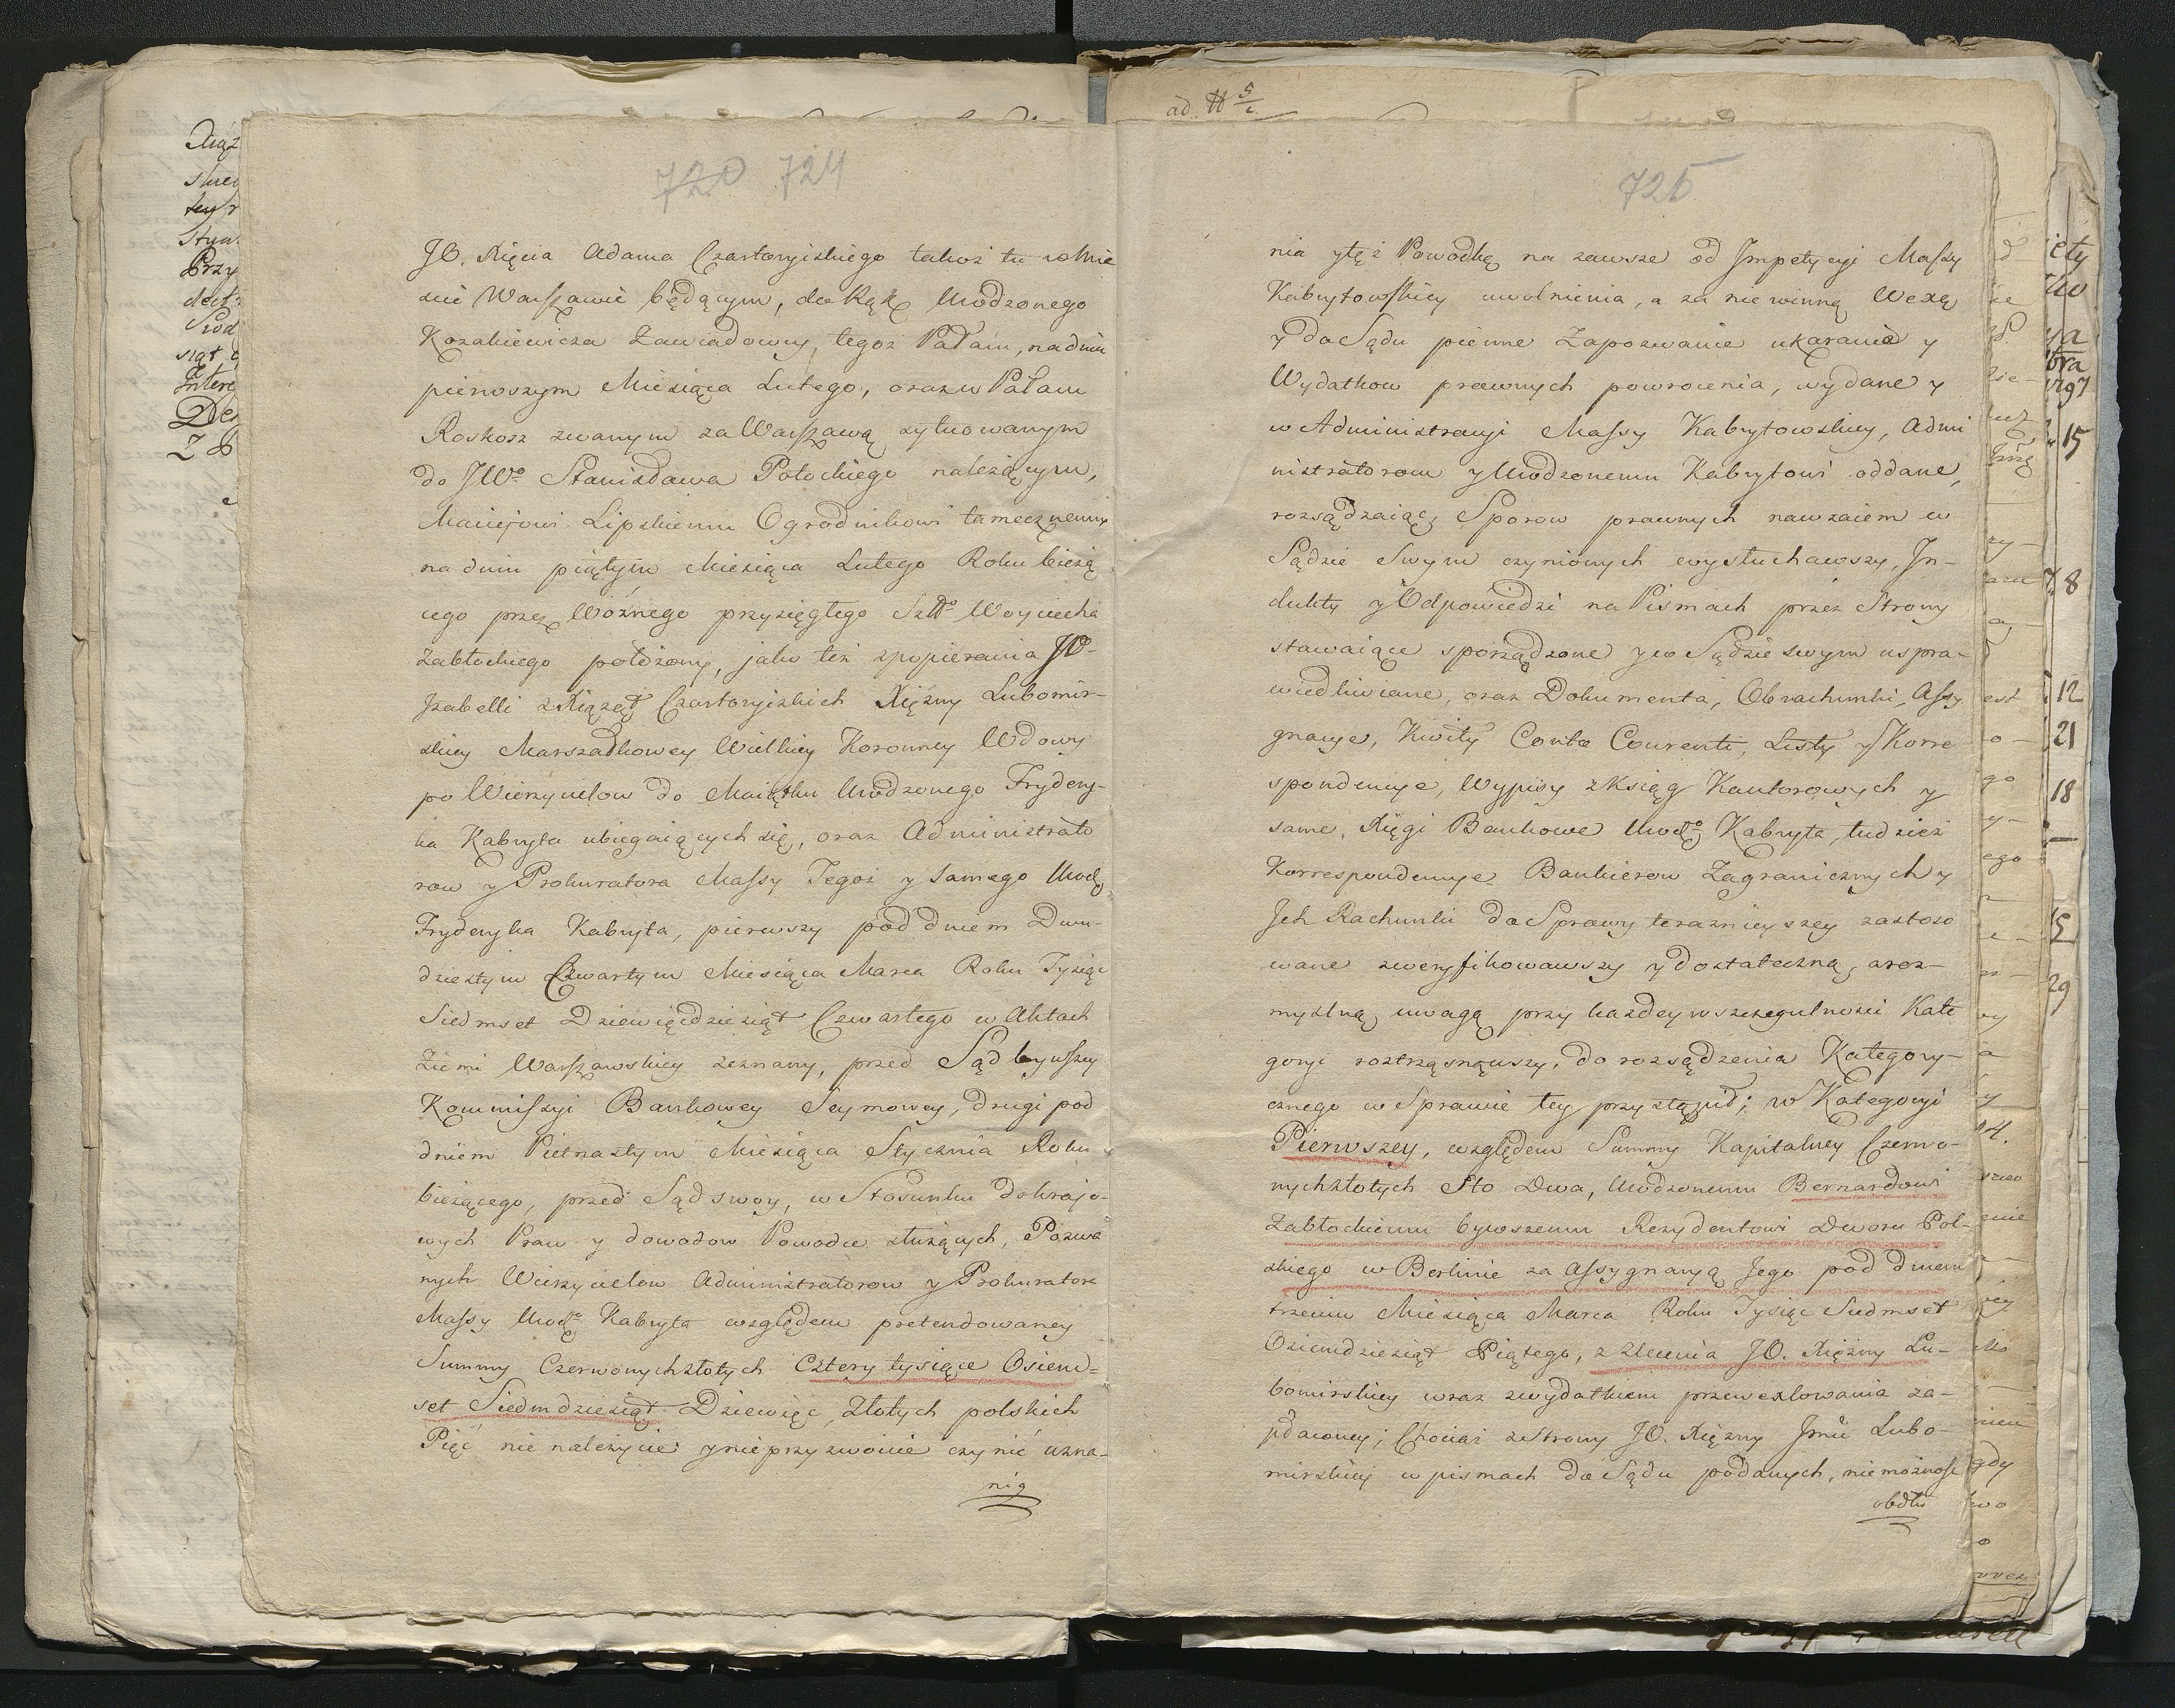 720 724
JO. Xięcia Adama Czartoryiskiego takoż tu w Mie
scie Warszawie będącym, do Rąk Urodzonego
Kozakiewicza Zawiadowcy, tegoż Pałacu, na dniu
pierwszym Miesiąca Lutego, oraz w Pałacu
Roskosz zwanym za Warszawą sytuowanym
do JWo Stanisława Potockiego należącym,
Maciejowi Lipskiemu Ogrodnikowi tamecznemu
na dniu piątym Miesiąca Lutego Roku bieżą
cego przez Woźnego przysięgłego Szlo Woyciecha
Zabłockiego położony, jako też z popierania JO.
Izabelli z Xiążąt Czartoryiskich Xiężny Lubomir-
skiey Marszałkowey Wielkiey Koronney Wdowy
po Wierzycielow do Maiątku Urodzonego Frydery-
ka Kabryta ubiegaiących się, oraz Administrato
row y Prokuratora Massy Tegoż y samego Urodz
Fryderyka Kabryta, pierwszy pod dniem Dwu-
dziestym Czwartym Miesiąca Marca Roku Tysiąc
Siedmset Dziewięćdziesiąt Czwartego w Aktach
Ziemi Warszawskiey zeznany, przed Sąd bywszey
Kommiszyi Bankowey Seymowey, drugi pod
dniem Pietnastym Miesiąca Stycznia Roku
bieżącego, przed Sąd swoy, w Stosunku do krajo-
wych Praw y dowodow Powodce służących, Pozwa
nych Wierzycielow Administratorow y Prokuratora
Massy Urodzo Kabryta względem pretendowaney
Summy Czerwonych złotych Cztery tysiące Osiem=
set Siedmdziesiąt Dziewięć, Złotych polskich
Pięć nienależycie y nieprzyzwoicie czynić uzna-
nia
ad. N 5/c
725
nia y też Powodkę na zawsze od Impetycyi Massy
Kabrytowskiey uwolnienia, a za niewinną Wexą
y do Sądu pienne Zapozwanie ukarania y
Wydatkow prawnych powrocenia, wydane y
w Administracyi Massy Kabrytowskiey, Admi
nistratorom y Urodzonemu Kabrytowi oddane,
rozsądzaiąc, Sporow prawnych nawzaiem w
Sądzie Swym czynionych wysłuchawszy, In-
dukty y Odpowiedzi na Pismach przez Strony
stawaiące sporządzone y w Sądzie swym uspra-
wiedliwiane, oraz Dokumenta, Obrachunki, Assy
gnacye, Kwity Conto Courenti, Listy y Korre
spondencye, Wypisy z Ksiąg Kantorowych y
same Xięgi Bankowe Urodzo Kabryta, tudzież
Korrespondencye Bankierow Zagranicznych y
Ich Rachunki do Sprawy teraznieyszey zastoso
wane zweryfikowawszy y dostateczną, a roz-
myślną uwagą przy każdey w szczegulności Kate
goryi roztrząsnąwszy, do rozsądzenia Kategory-
cznego w Sprawie tey przystąpił; w Kategoryi
Pierwszey, względem Summy Kapitalney Czerwo-
nych złotych Sto Dwa, Urodzonemu Bernardowi
Zabłockiemu bywszemu Rezydentowi Dworu Pol-
skiego w Berlinie za Assygnacyą Jego pod dniem
trzecim Miesiąca Marca Roku Tysiąc Siedmset
Osiemdziesiąt Piątego, z zlecenia JO. Xiężny Lu-
bomirskiey wraz z wydatkiem przewexlowania za-
płaconey; Chociaż ze Strony JO. Xiężny Jmci Lubo-
mirskiey w pismach do Sądu podanych, niemożność
obdłu